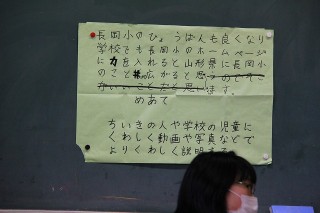 長岡小のひょうばんも良くなり
学校でも長岡小のホームページ
に力を入れると山形県に長岡小
のこと広がると思う
ます。
めあて
ちいきの人や学校の児童に
くわしく動画や写真などで
よりくわしく説明する